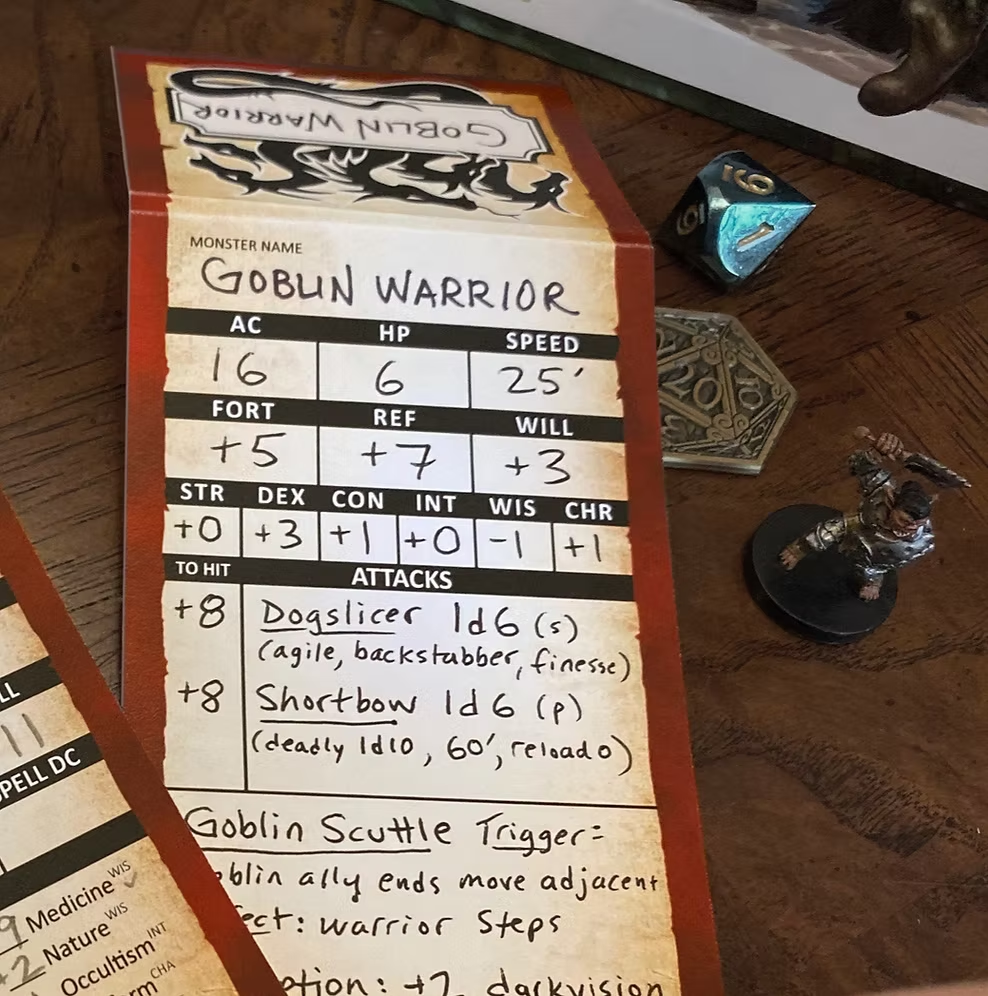 GOBLIN WARRIOR
MONSTER NAME
GOBLIN WARRIOR
AC HP SPEED
16 6 25'
FORT REF WILL
+5 +7 +3
STR DEX CON INT WIS CHR
+0 +3 +1 +0 -1 +1
TO HIT ATTACKS
+8 Dogslicer 1d6 (s)
(agile, backstabber, finesse)
+8 Shortbow 1d6 (p)
(deadly 1d10, 60', reload 0)
Goblin Scuttle Trigger=
oblin ally ends move adjacent
ect: warrior Steps
ption: +2 darkvision
LL
11
SPELL DC
9 Medicine WIS
+2 Nature WIS
Occultism INT
rm CHA
16
1
20
10